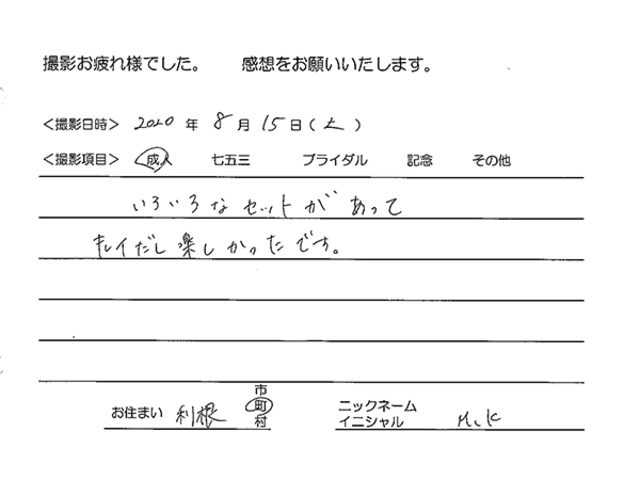 撮影お疲れ様でした。 感想をお願いいたします。
<撮影日時> 2020 年 8 月 15 日 (土)
<撮影項目> 成人 七五三 ブライダル 記念 その他
いろいろなセットがあって
キレイだし楽しかったです。
お住まい 利根 市 町 村
ニックネーム イニシャル M.K